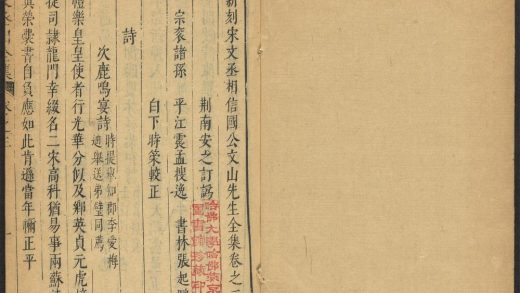 新刻宋文丞相信國公文山先生全集卷之
荆南安之訂訛
宗袞諸孫 平江震孟搜逸 書林張起
白下時策較正
哈佛大學哈佛燕京
圖書館珍藏印
詩
次鹿鳴宴詩
時提舉知郡李愛梅
迪舉送弟璧同薦
禮樂皇皇使者行光華分似及鄉英貞元虎
捷司隸龍門幸綴名二宋高科猶易事兩蘇
真榮囊書自負應如此肯遜當年禰正平
一